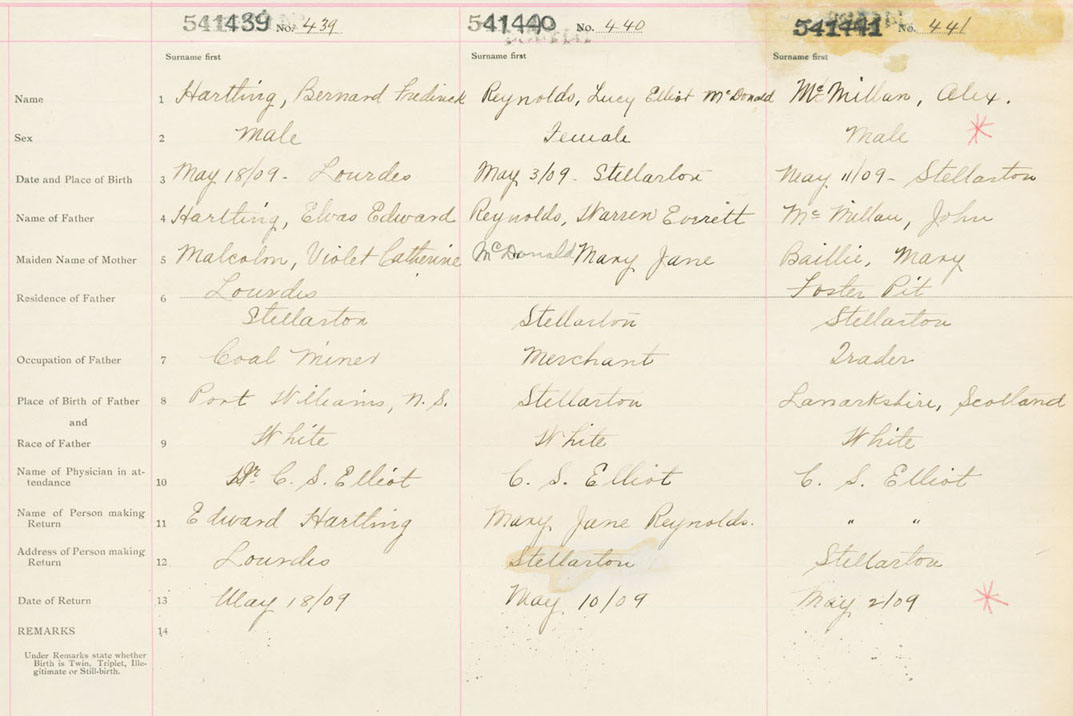 541439 No. 439 541440 No. 440 541441 No. 441
Surname first Surname first Surname first
Name 1 Hartling, Bernard Fredrick Reynolds, Lucy Elliot McDonald McMillan, Alex.
Sex 2 Male Female Male
Date and Place of Birth 3 May 18/09 - Lourdes May 3/09 - Stellarton May 11/09 - Stellarton
Name of Father 4 Hartling, Elvas Edward Reynolds, Warren Everett McMillan, John
Maiden Name of Mother 5 Malcolm, Violet Catherine McDonald Mary Jane Baillie, Mary
Residence of Father 6 Lourdes Foster Pit
Stellarton Stellarton Stellarton
Occupation of Father 7 Coal Miner Merchant Trader
Place of Birth of Father 8 Port Williams, N.S. Stellarton Lanarkshire, Scotland
and
Race of Father 9 White White White
Name of Physician in at-
tendance 10 Dr. C. S. Elliot C. S. Elliot C. S. Elliot
Name of Person making
Return 11 Edward Hartling Mary Jane Reynolds. " "
Address of Person making
Return 12 Lourdes Stellarton Stellarton
Date of Return 13 May 18/09 May 10/09 May 2/09
REMARKS 14
Under Remarks state whether
Birth is Twin, Triplet, Ille-
gitimate or Still-birth.